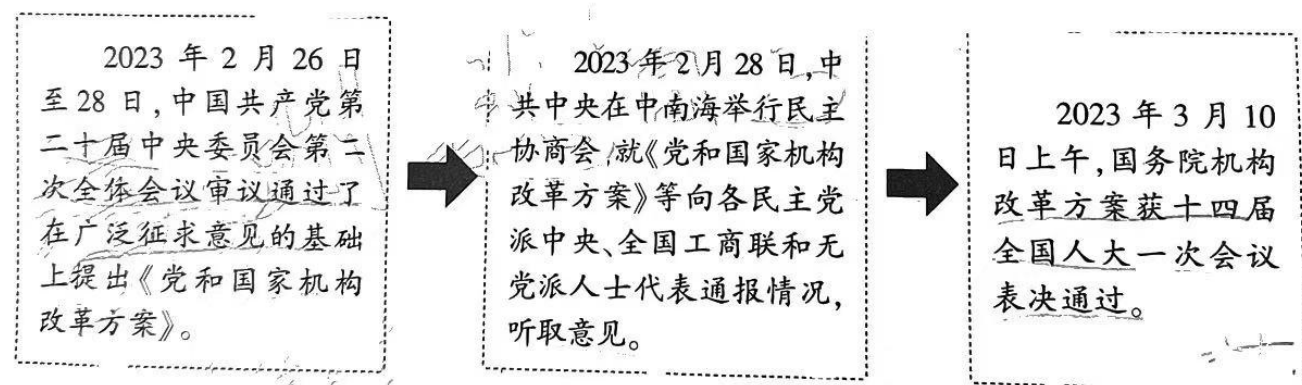 2023 年 2 月 26 日
至28 日,中国共产党第
二十届中央委员会第二
次全体会议审议通过了
在广泛征求意见的基础
上提出《党和国家机构
改革方案》。
2023年2月28日,中
共中央在中南海举行民主
协商会,就《党和国家机构
改革方案》等向各民主党
派中央、全国工商联和无
党派人士代表通报情况,
听取意见。
2023 年 3 月 10
日上午,国务院机构
改革方案获十四届
全国人大一次会议
表决通过。